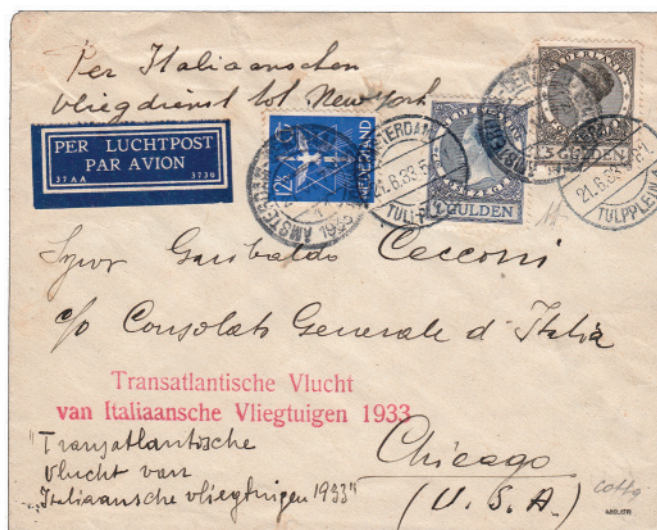 Per Italiaanschen
vliegdienst tot New York
PER LUCHTPOST
PAR AVION
37AA 3730
12½
NEDERLAND
AMSTERDAM
1933
AMSTERDAM
21.6.33.
TULPPLEIN
GULDEN
NEDERLAND
5 GULDEN
21.6.33.
TULPPLEIN A
Garibaldo Cecconi
c/o Consolato Generale d'Italia
Transatlantische Vlucht
van Italiaansche Vliegtuigen 1933
"Transatlantische
vlucht van
Italiaansche vliegtuigen 1933"
Chicago
(U.S.A.)